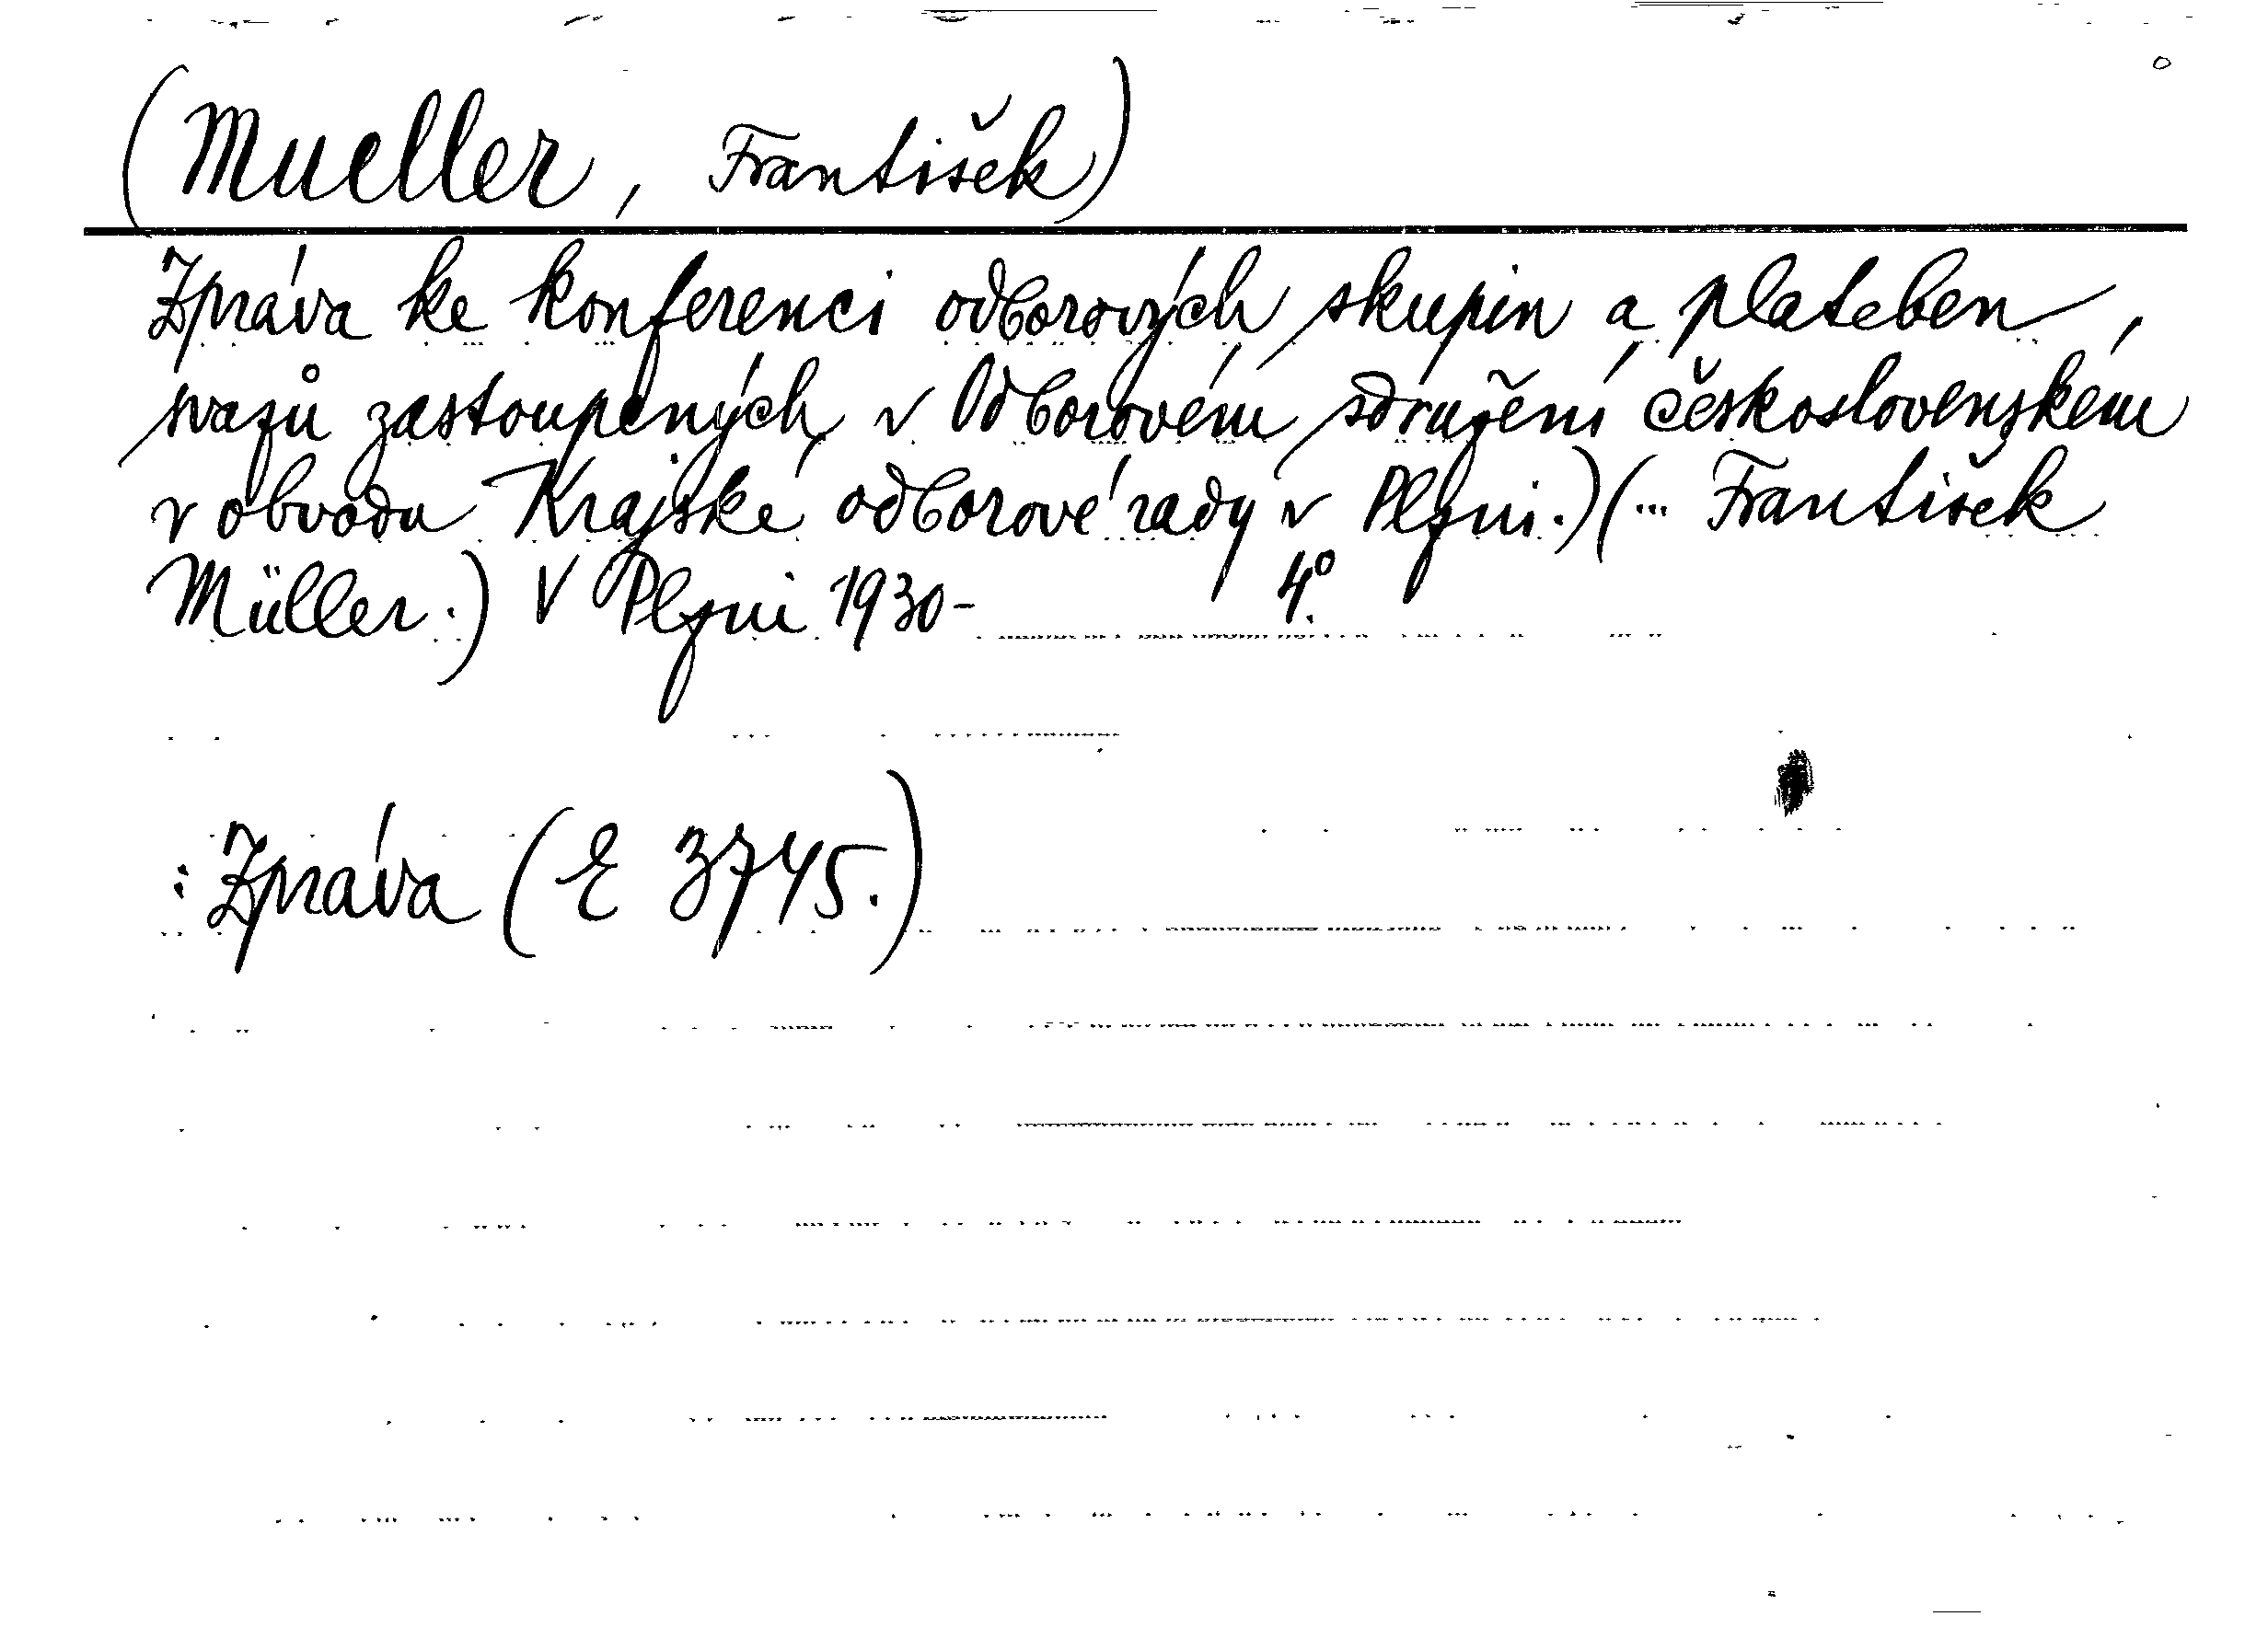 (Mueller, František)
Zpráva ke konferenci odborových skupin a plateben,
svazů zastoupených v Odborovém sdružení československém
v obvodu Krajské odborové rady v Plzni.) (... František
Müller.) V Plzni 1930- 4°.
: Zpráva (E 3745.)